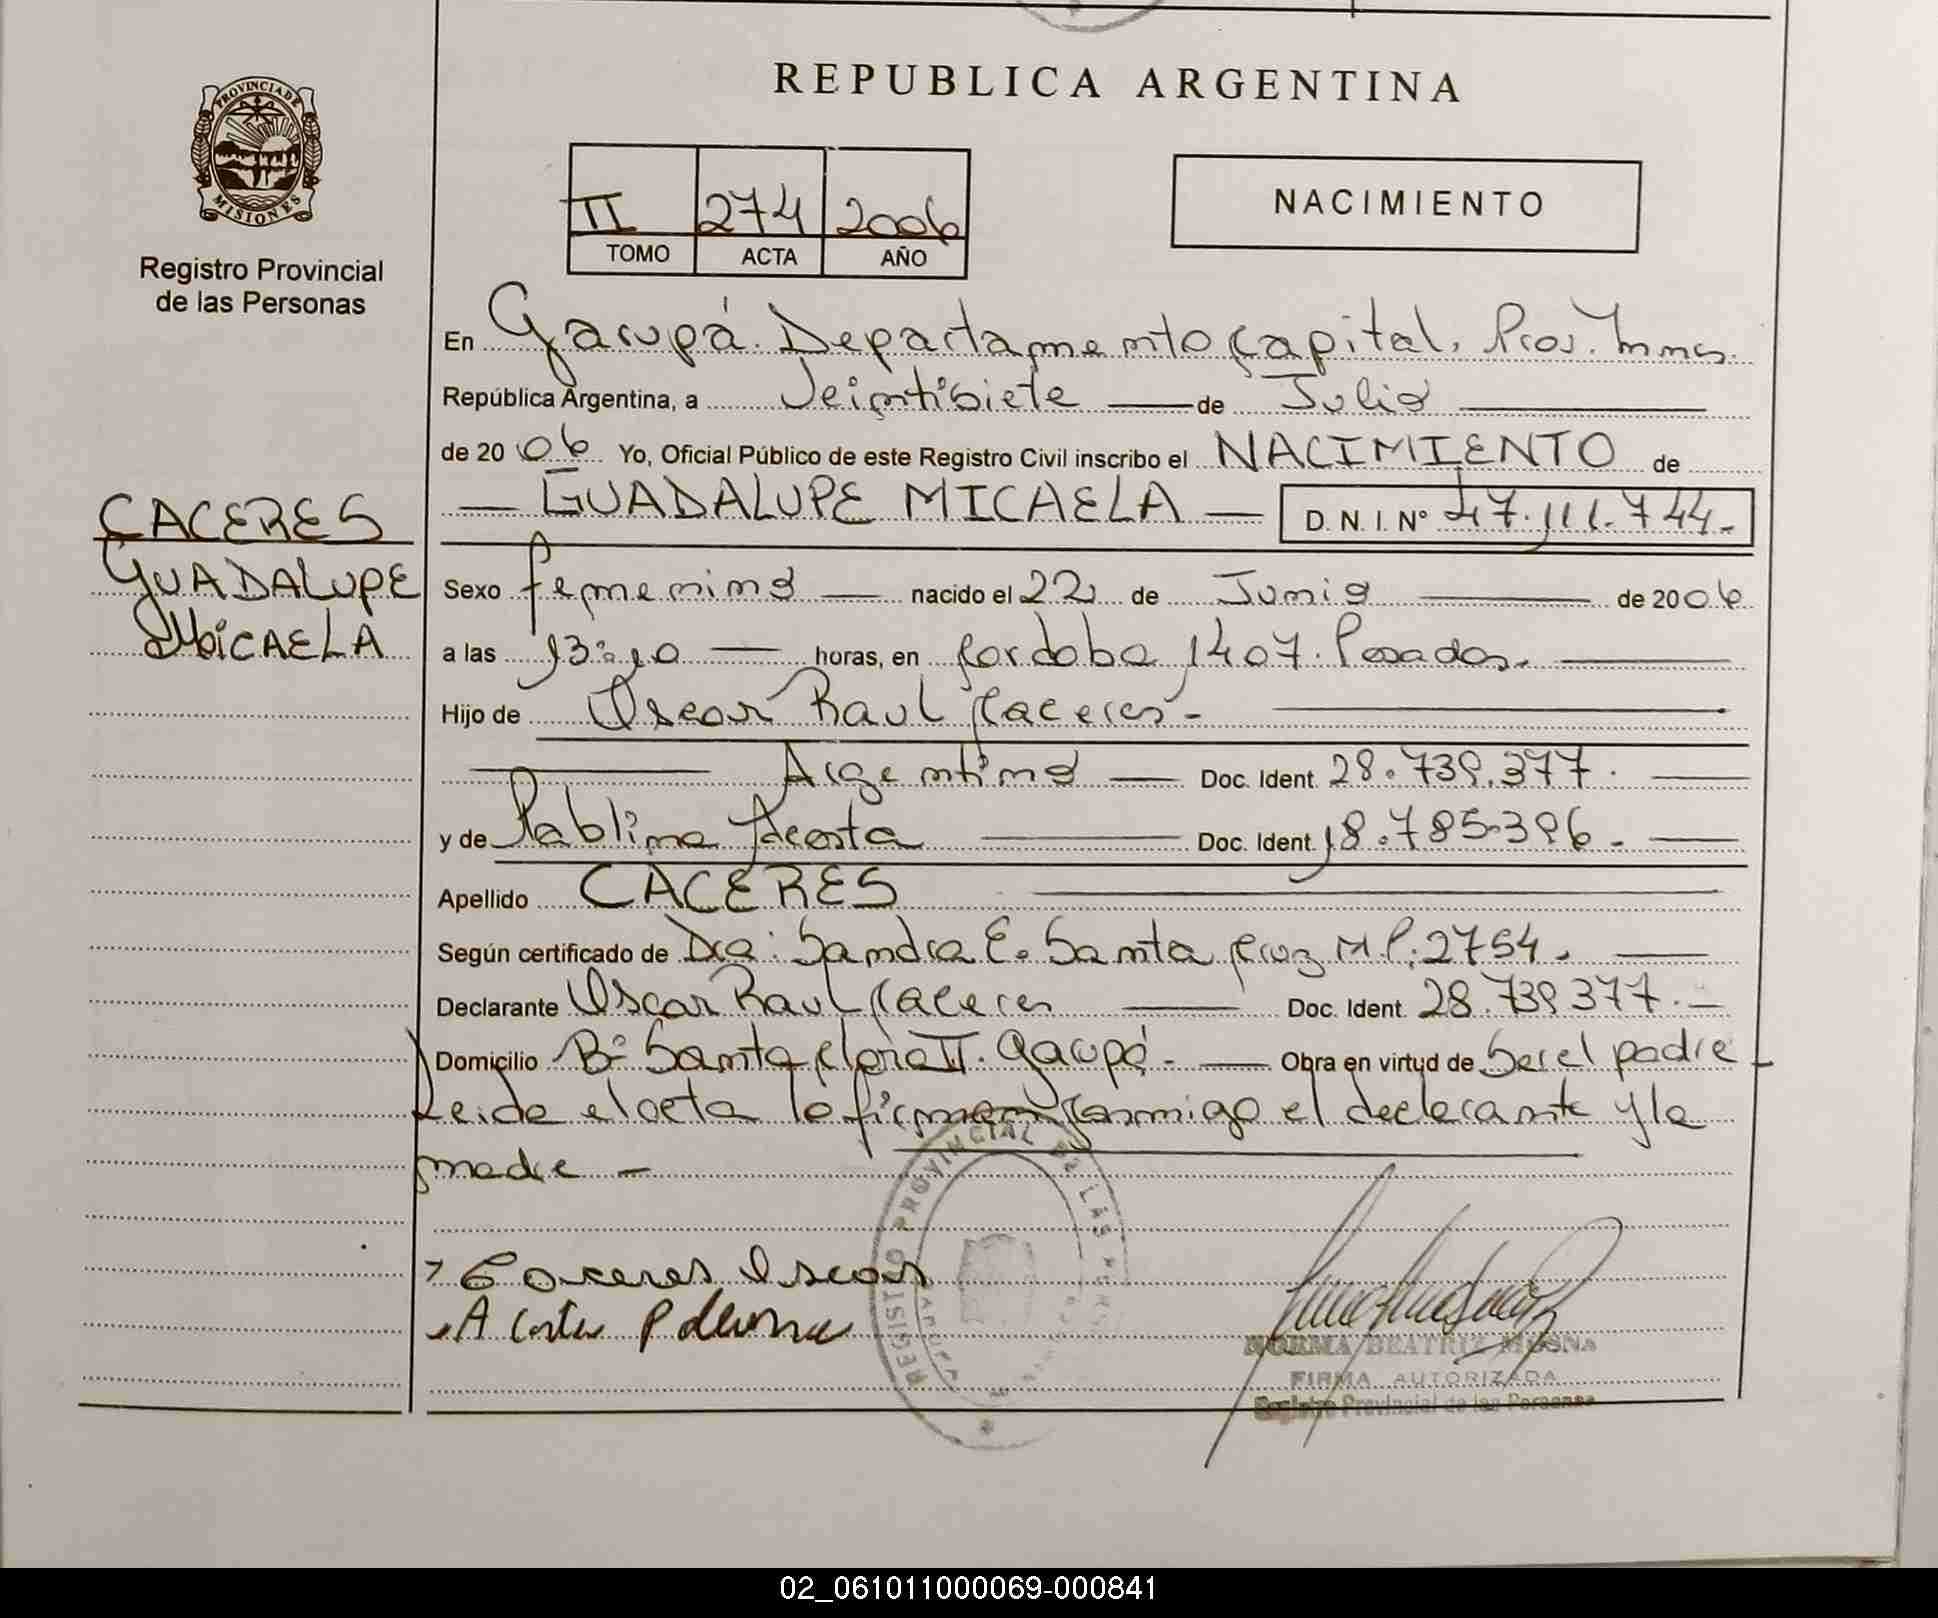 REPUBLICA ARGENTINA
PROVINCIA DE
MISIONES
Registro Provincial
de las Personas
II 274 2006
TOMO ACTA AÑO
NACIMIENTO
En Garupá. Departamento Capital. Prov. Mnes.
República Argentina, a Veintisiete de Julio
de 2006 Yo, Oficial Público de este Registro Civil inscribo el NACIMIENTO de
GUADALUPE MICAELA D. N. I. N° 47.111.744.
CACERES
GUADALUPE
MICAELA
Sexo femenino nacido el 22 de Junio de 2006
a las 13:10 horas, en Cordoba 1407. Posadas.
Hijo de Oscar Raul Caceres-
Argentino Doc. Ident. 28.739.377.
y de Pablina Acosta Doc. Ident. 18.785.396.-
Apellido CACERES
Según certificado de Dra: Sandra E. Santa Cruz M.P:2754.
Declarante Oscar Raul Caceres Doc. Ident. 28.739.377.-
Domicilio B° Santa Clara II. Garupá.- Obra en virtud de Ser el padre
Leida el acta la firman conmigo el declarante y la
madre -
Caceres Oscar
Acosta
REGISTRO PROVINCIAL DE LAS
NORMA BEATRIZ MOSNA
FIRMA AUTORIZADA
Registro Provincial de las Personas
02_061011000069-000841